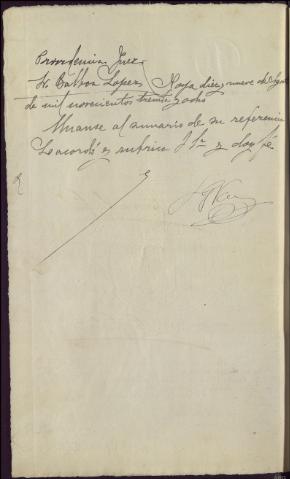 Providencia Juez
Sr Balboa Lopez, Noya diez y nueve de
de mil novecientos treinta y ocho
Unanse al sumario de su referencia
Lo acordó y suscribe S Sª y doy fé